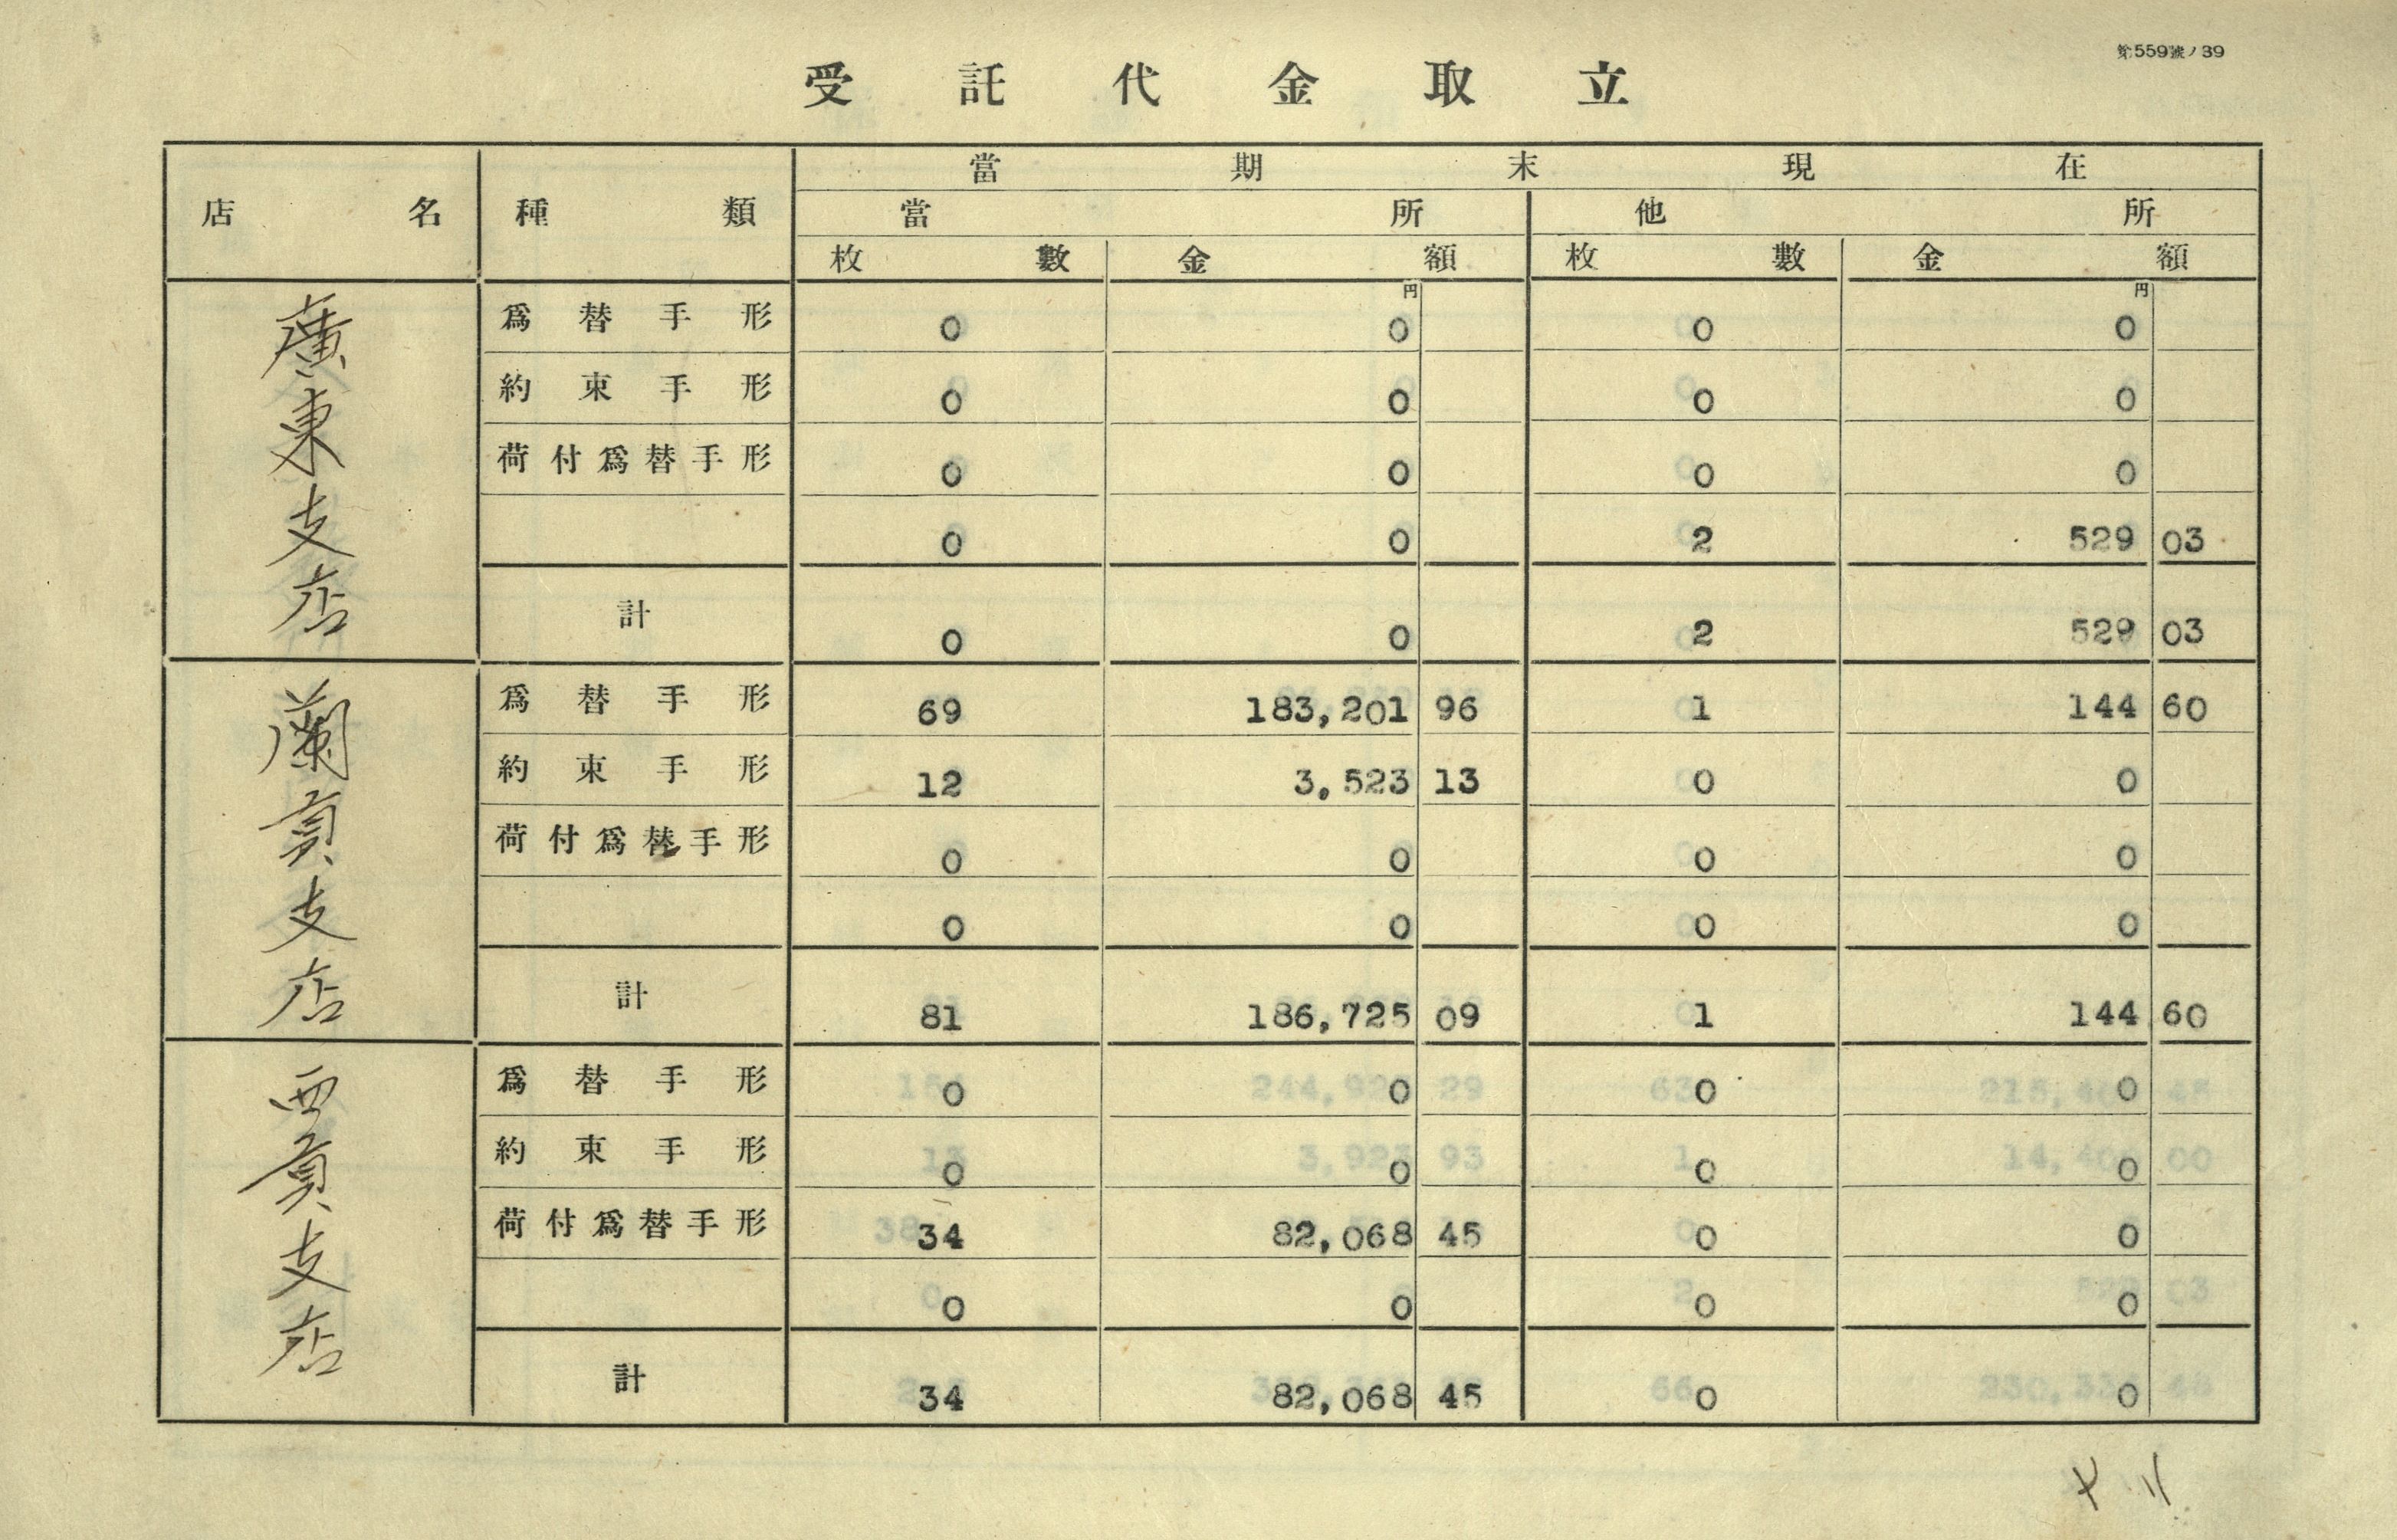 第559號ノ39
受託代金取立
店名 種類 當期末現在
當所 他所
枚數 金額 枚數 金額
円 円
廣東支店
爲替手形 0 0 0 0
約束手形 0 0 0 0
荷付爲替手形 0 0 0 0
0 0 2 529 03
計 0 0 2 529 03
蘭貢支店
爲替手形 69 183,201 96 1 144 60
約束手形 12 3,523 13 0 0
荷付爲替手形 0 0 0 0
0 0 0 0
計 81 186,725 09 1 144 60
西貢支店
爲替手形 0 0 0 0
約束手形 0 0 0 0
荷付爲替手形 34 82,068 45 0 0
0 0 0 0
計 34 82,068 45 0 0